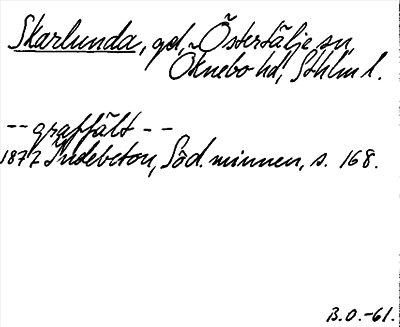 Skarlunda, gd, Östertälje sn,
Öknebo hd, Sthlm l.
-- gravfält --
1877 Indebetou, Söd. minnen, s. 168.
B.O.-61.